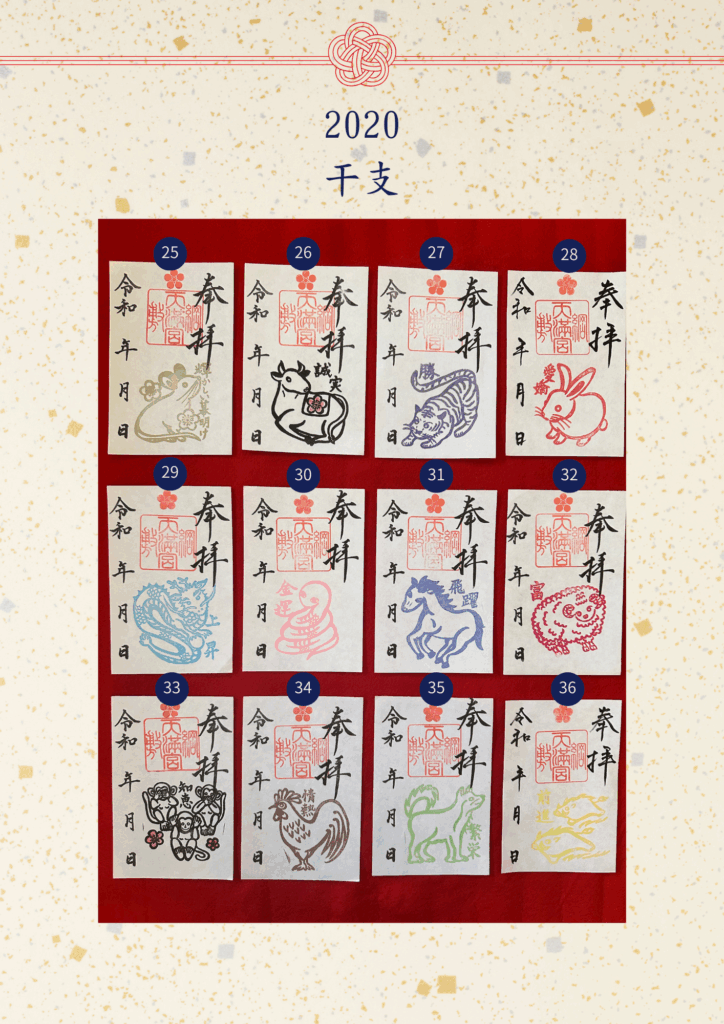 2020
干支
25
奉拝
綱敷天満宮
輝かしい幕明け
令和 年 月 日
26
奉拝
綱敷天満宮
誠実
令和 年 月 日
27
奉拝
綱敷天満宮
勝
令和 年 月 日
28
奉拝
綱敷天満宮
愛嬌
令和 年 月 日
29
奉拝
綱敷天満宮
上昇
令和 年 月 日
30
奉拝
綱敷天満宮
金運
令和 年 月 日
31
奉拝
綱敷天満宮
飛躍
令和 年 月 日
32
奉拝
綱敷天満宮
富
令和 年 月 日
33
奉拝
綱敷天満宮
知恵
令和 年 月 日
34
奉拝
綱敷天満宮
情熱
令和 年 月 日
35
奉拝
綱敷天満宮
繁栄
令和 年 月 日
36
奉拝
綱敷天満宮
令和 年 月 日